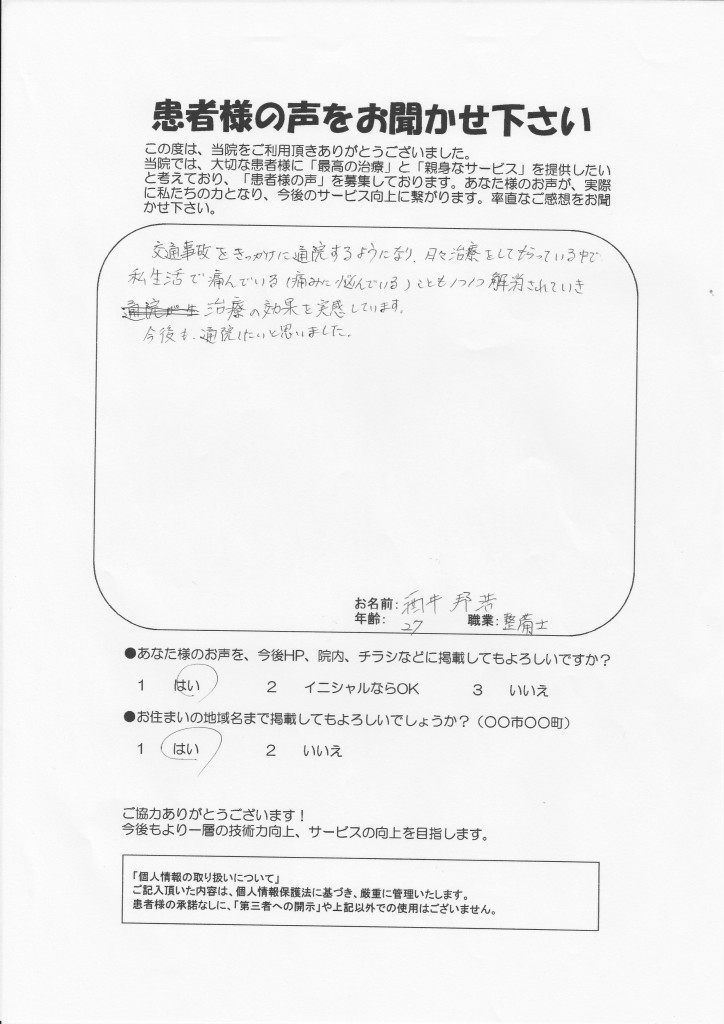 患者様の声をお聞かせ下さい
この度は、当院をご利用頂きありがとうございました。
当院では、大切な患者様に「最高の治療」と「親身なサービス」を提供したい
と考えており、「患者様の声」を募集しております。あなた様のお声が、実際
に私たちの力となり、今後のサービス向上に繋がります。率直なご感想をお聞
かせ下さい。
交通事故をきっかけに通院するようになり、日々治療をしてもらっている中で
私生活で痛んでいる(痛みに悩んでいる)ことも1つ1つ解消されていき
治療の効果を実感しています。
今後も、通院したいと思いました。
お名前: 酒井 邦浩
年齢: 27 職業: 整備士
●あなた様のお声を、今後HP、院内、チラシなどに掲載してもよろしいですか?
1 はい 2 イニシャルならOK 3 いいえ
●お住まいの地域名まで掲載してもよろしいでしょうか?(〇〇市〇〇町)
1 はい 2 いいえ
ご協力ありがとうございます!
今後もより一層の技術力向上、サービスの向上を目指します。
「個人情報の取り扱いについて」
ご記入頂いた内容は、個人情報保護法に基づき、厳重に管理いたします。
患者様の承諾なしに、「第三者への開示」や上記以外での使用はございません。